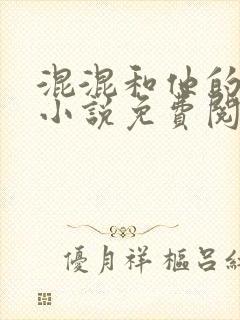 混混和他的
小說免費閱
優月祥 樞呂